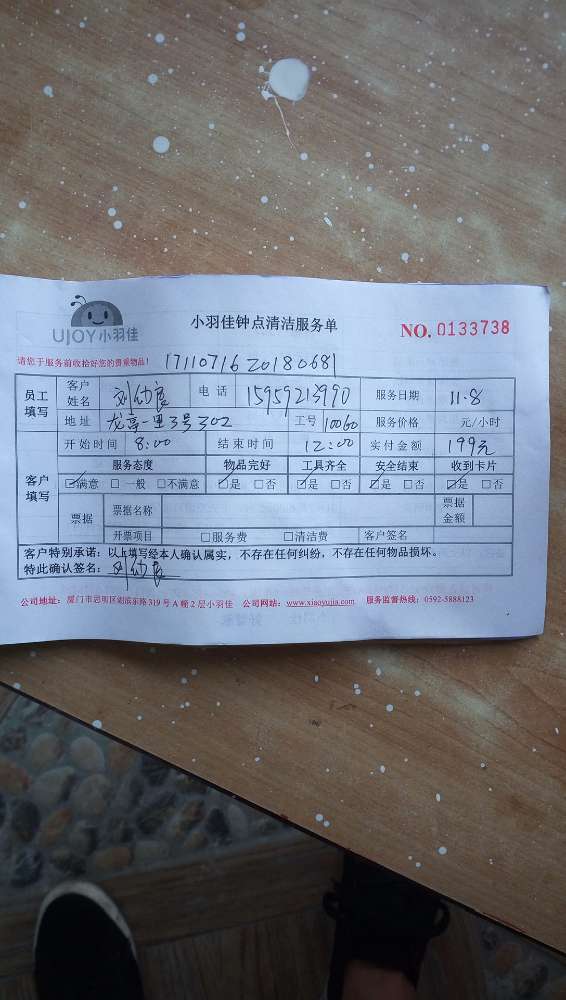 UJOY小羽佳
小羽佳钟点清洁服务单
NO. 0133738
请您于服务前收拾好您的贵重物品!
1711071620180681
员工填写 客户姓名 刘幼良 电话 15959213990 服务日期 11.8
地址 龙亭一里3号302 工号 10060 服务价格 元/小时
开始时间 8:00 结束时间 12:00 实付金额 199元
客户填写 服务态度 物品完好 工具齐全 安全结束 收到卡片
☑满意 □一般 □不满意 ☑是 □否 ☑是 □否 ☑是 □否 ☑是 □否
票据 票据名称 票据金额
开票项目 □服务费 □清洁费 客户签名
客户特别承诺：以上填写经本人确认属实，不存在任何纠纷，不存在任何物品损坏。
特此确认签名：刘幼良
公司地址：厦门市思明区湖滨东路319号A幢2层小羽佳 公司网站：www.xiaoyujia.com 服务监督热线：0592-5888123